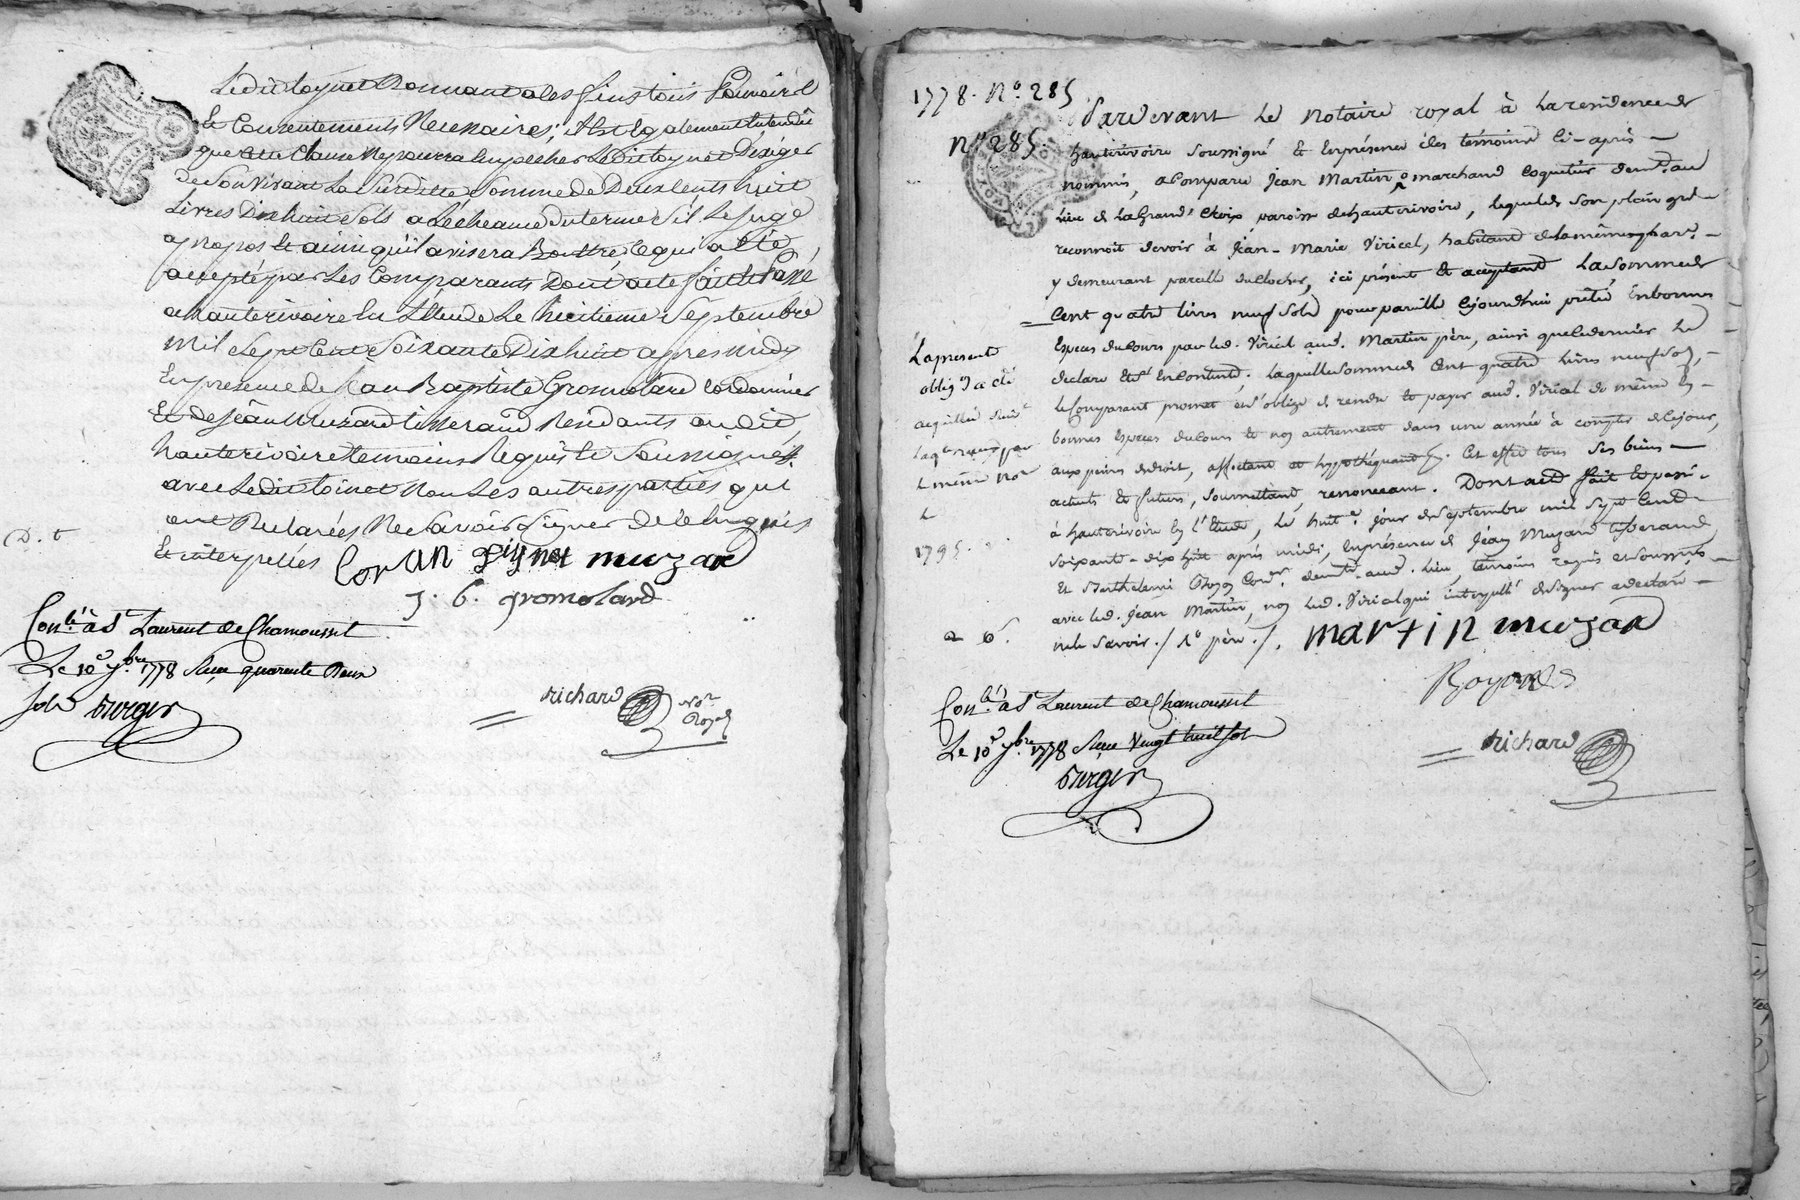 Ledit toynet Donnant a les fins tous Pouvoirs
Et Consentements Necessaires; Il est Egalement Entendu
que cette Clause Ne pourra Empecher Ledit toynet D'exiger
de Son Vivant La Susditte Somme de Deux Cents huit
Livres Dix huit Sols a L'écheance du terme S'il Le juge
apropos Et ainsi qu'il avisera Bon Etre, Ce qui a Eté
accepté par Les Comparants Dont acte fait Et Passé
a hauterivoire En L'Etude Le huitieme Septembre
Mil Sept Cent Soixante Dix huit apres midy
En presence de Jean Baptiste Gromolard Cordonnier
Et de Jean Muzard tisserand Residants audit
hauterivoire temoins Requis Et Soussignés
avec Ledit toinet Non Les autres parties qui
ont Declarées Ne Savoir Signer De ce Enquis
Et interpellés muzard
D. t
J. B. gromolard
Con.lé à S.t Laurent de Chamousset
Le 10.e 7.bre 1778 Reçu quarente Deux
sols Burger
richard No.re Royal
1778. N.o 285
N.o 285.
Pardevant Le Notaire royal à la residence de
hauterivoire soussigné Et En présence des témoins Ci-après
nommés, a Comparu Jean Martin marchand Coquetier dem.t au
lieu de La Grand' Croix paroisse de hauterivoire, lequel de son plain gré
reconnoit devoir à Jean-Marie Viricel, habitant de la même
y demeurant parcelle du Clocher, ici présent Et acceptant La somme de
Cent quatre livres neuf sols pour pareille Cejourdhui prêtée En bonnes
Especes du Cours par led. Viricel aud. Martin père, ainsi que le dernier Le
declare Et s'En Contente; laquelle somme de Cent quatre livres neuf sols,
le Comparant promet et s'oblige de rendre Et payer aud. Viricel de même En
bonnes Especes du Cours Et non autrement dans une année à compter de Ce jour,
aux peines de droit, affectant et hypothéquant à Cet effet tous ses biens
actuels Et futurs, soumettant, renonceant. Dont acte fait Et passé
à hauterivoire En l'Etude, Le huit.e jour de Septembre mil sept Cent
soixante-dix huit après midi, En présence de Jean Muzard tisserand
Et Barthelemi Royon Cord.r dem.ts aud. Lieu, temoins requis et soussignés
avec led. Jean Martin, non led. Viricel qui interpellé de signer a declaré
ne le savoir ./. 1.o père ./.
martin muzard
Royon
La présent
oblig.n a été
acquittée
le même No.re
1795
Con.lé à S.t Laurent de Chamousset
Le 10.e 7.bre 1778 Reçu Vingt huit sols
Burger
richard